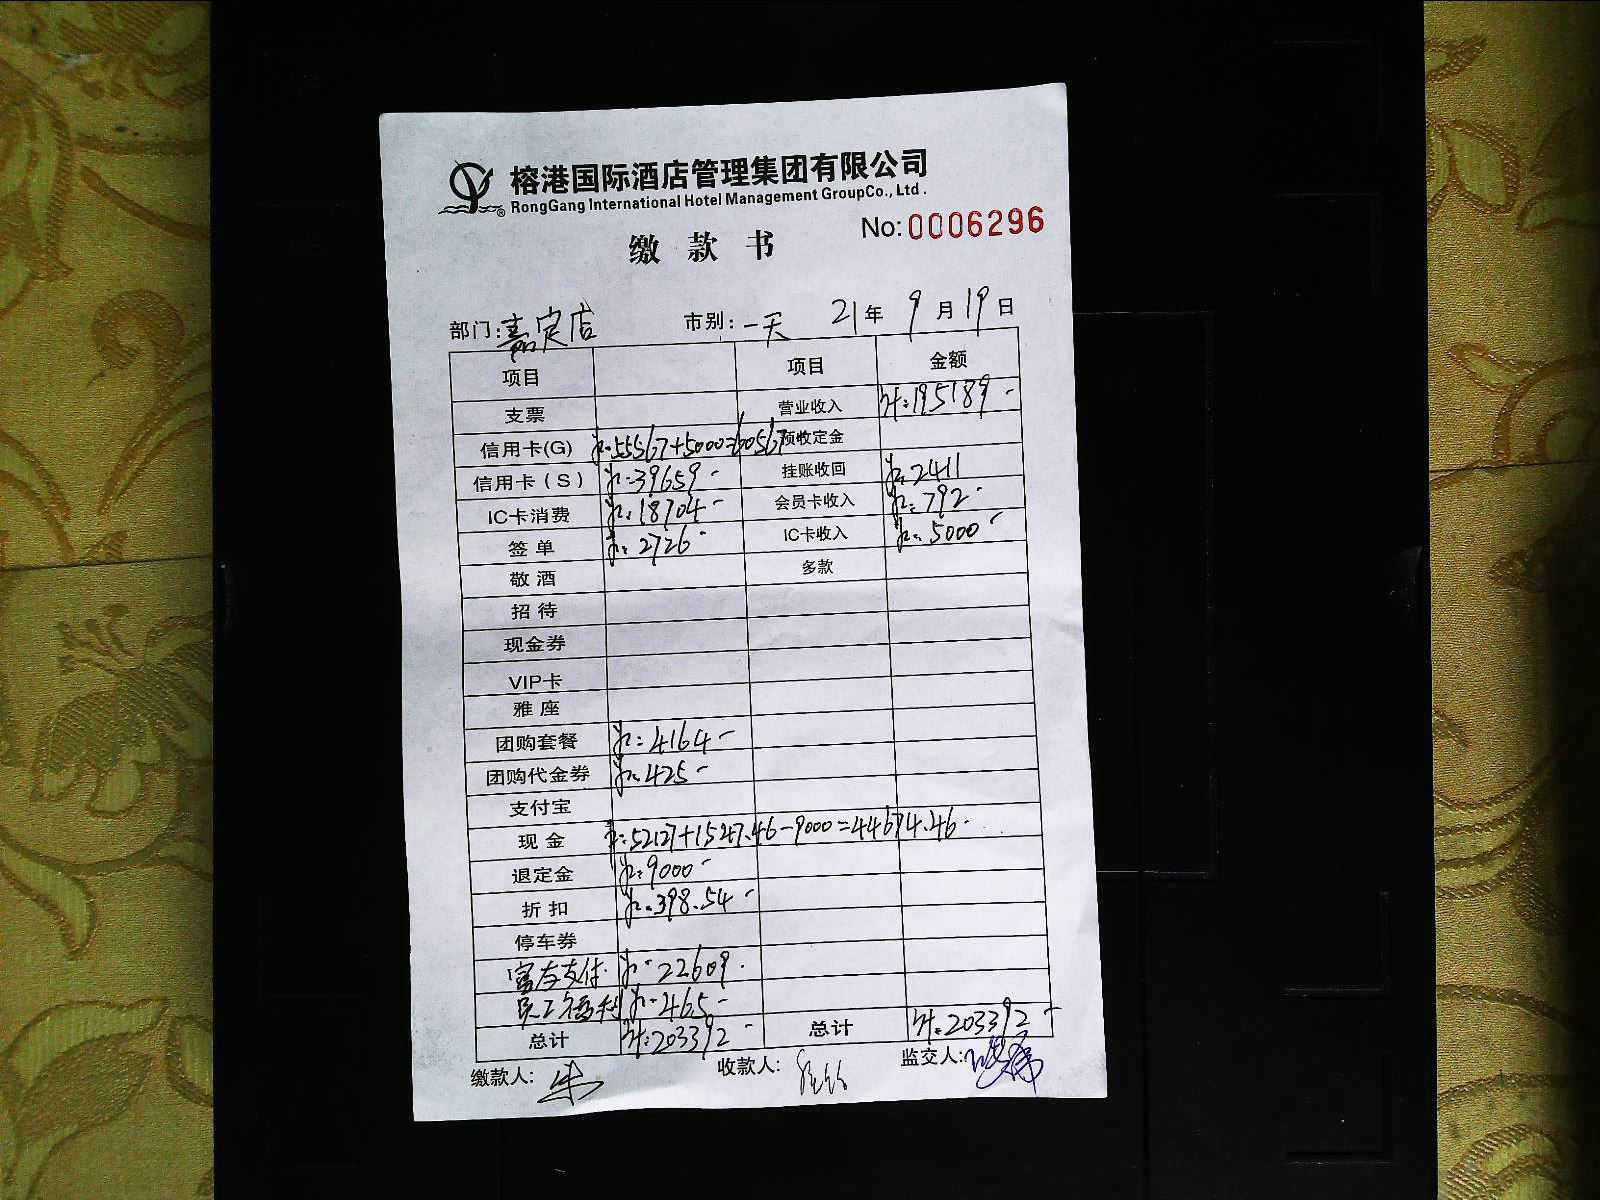 榕港国际酒店管理集团有限公司
RongGang International Hotel Management GroupCo., Ltd.
No:0006296
缴 款 书
部门:嘉定店 市别:一天 21年 9月19日
项目 项目 金额
支票 营业收入 计:195189-
信用卡(G) 55567+5000=60567 预收定金
信用卡(S) 39659- 挂账收回 2411
IC卡消费 18704- 会员卡收入 792-
签 单 2726- IC卡收入 5000-
敬 酒 多款
招 待
现金券
VIP卡
雅 座
团购套餐 4164-
团购代金券 425-
支付宝
现 金 52127+1547.46-9000=44674.46
退定金 9000-
折 扣 398.54-
停车券
支付 22609
员工福利 465-
总计 计:203392- 总计 计:203392-
缴款人: 朱 收款人: 监交人: